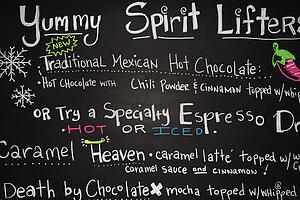 Yummy Spirit Lifters
NEW
Traditional Mexican Hot Chocolate:
• Hot Chocolate with Chili Powder & Cinnamon topped w/whip
OR Try a Specialty Espresso D
HOT OR ICED!
Caramel Heaven • caramel latte' topped w/
caramel sauce and cinnamon!
Death by Chocolate mocha topped w/whipped